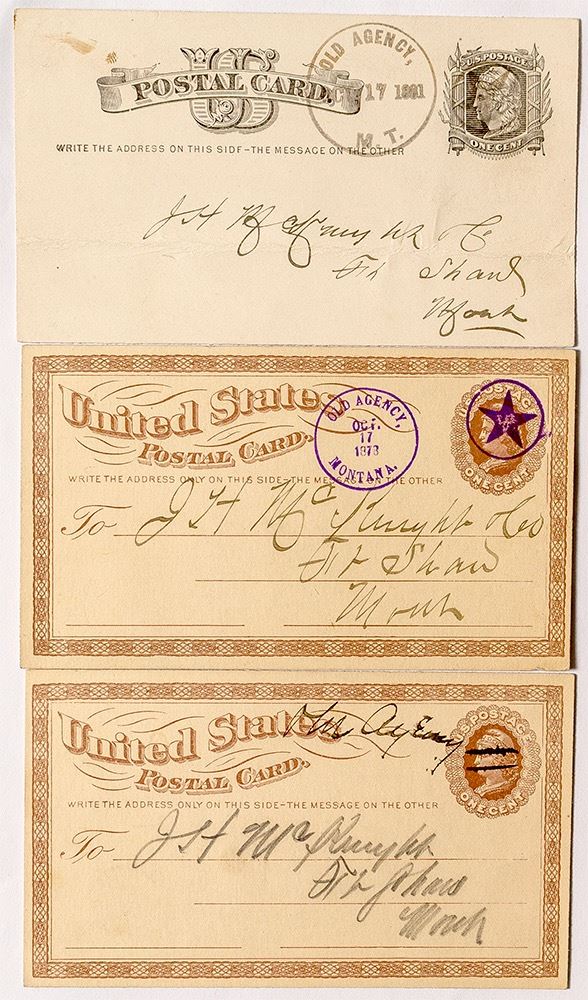 US
POSTAL CARD.
OLD AGENCY,
17 1881
M. T.
U.S. POSTAGE
ONE CENT
WRITE THE ADDRESS ON THIS SIDE-THE MESSAGE ON THE OTHER
J H McKnight & Co
Ft Shaw
Mont
United States
POSTAL CARD.
OLD AGENCY,
OCT.
17
1878
MONTANA.
POSTAGE
ONE CENT
WRITE THE ADDRESS ONLY ON THIS SIDE-THE MESSAGE ON THE OTHER
To J H McKnight & Co
Ft Shaw
Mont
United States
POSTAL CARD.
Agency
POSTAGE
ONE CENT
WRITE THE ADDRESS ONLY ON THIS SIDE-THE MESSAGE ON THE OTHER
To J H McKnight
Ft Shaw
Mont